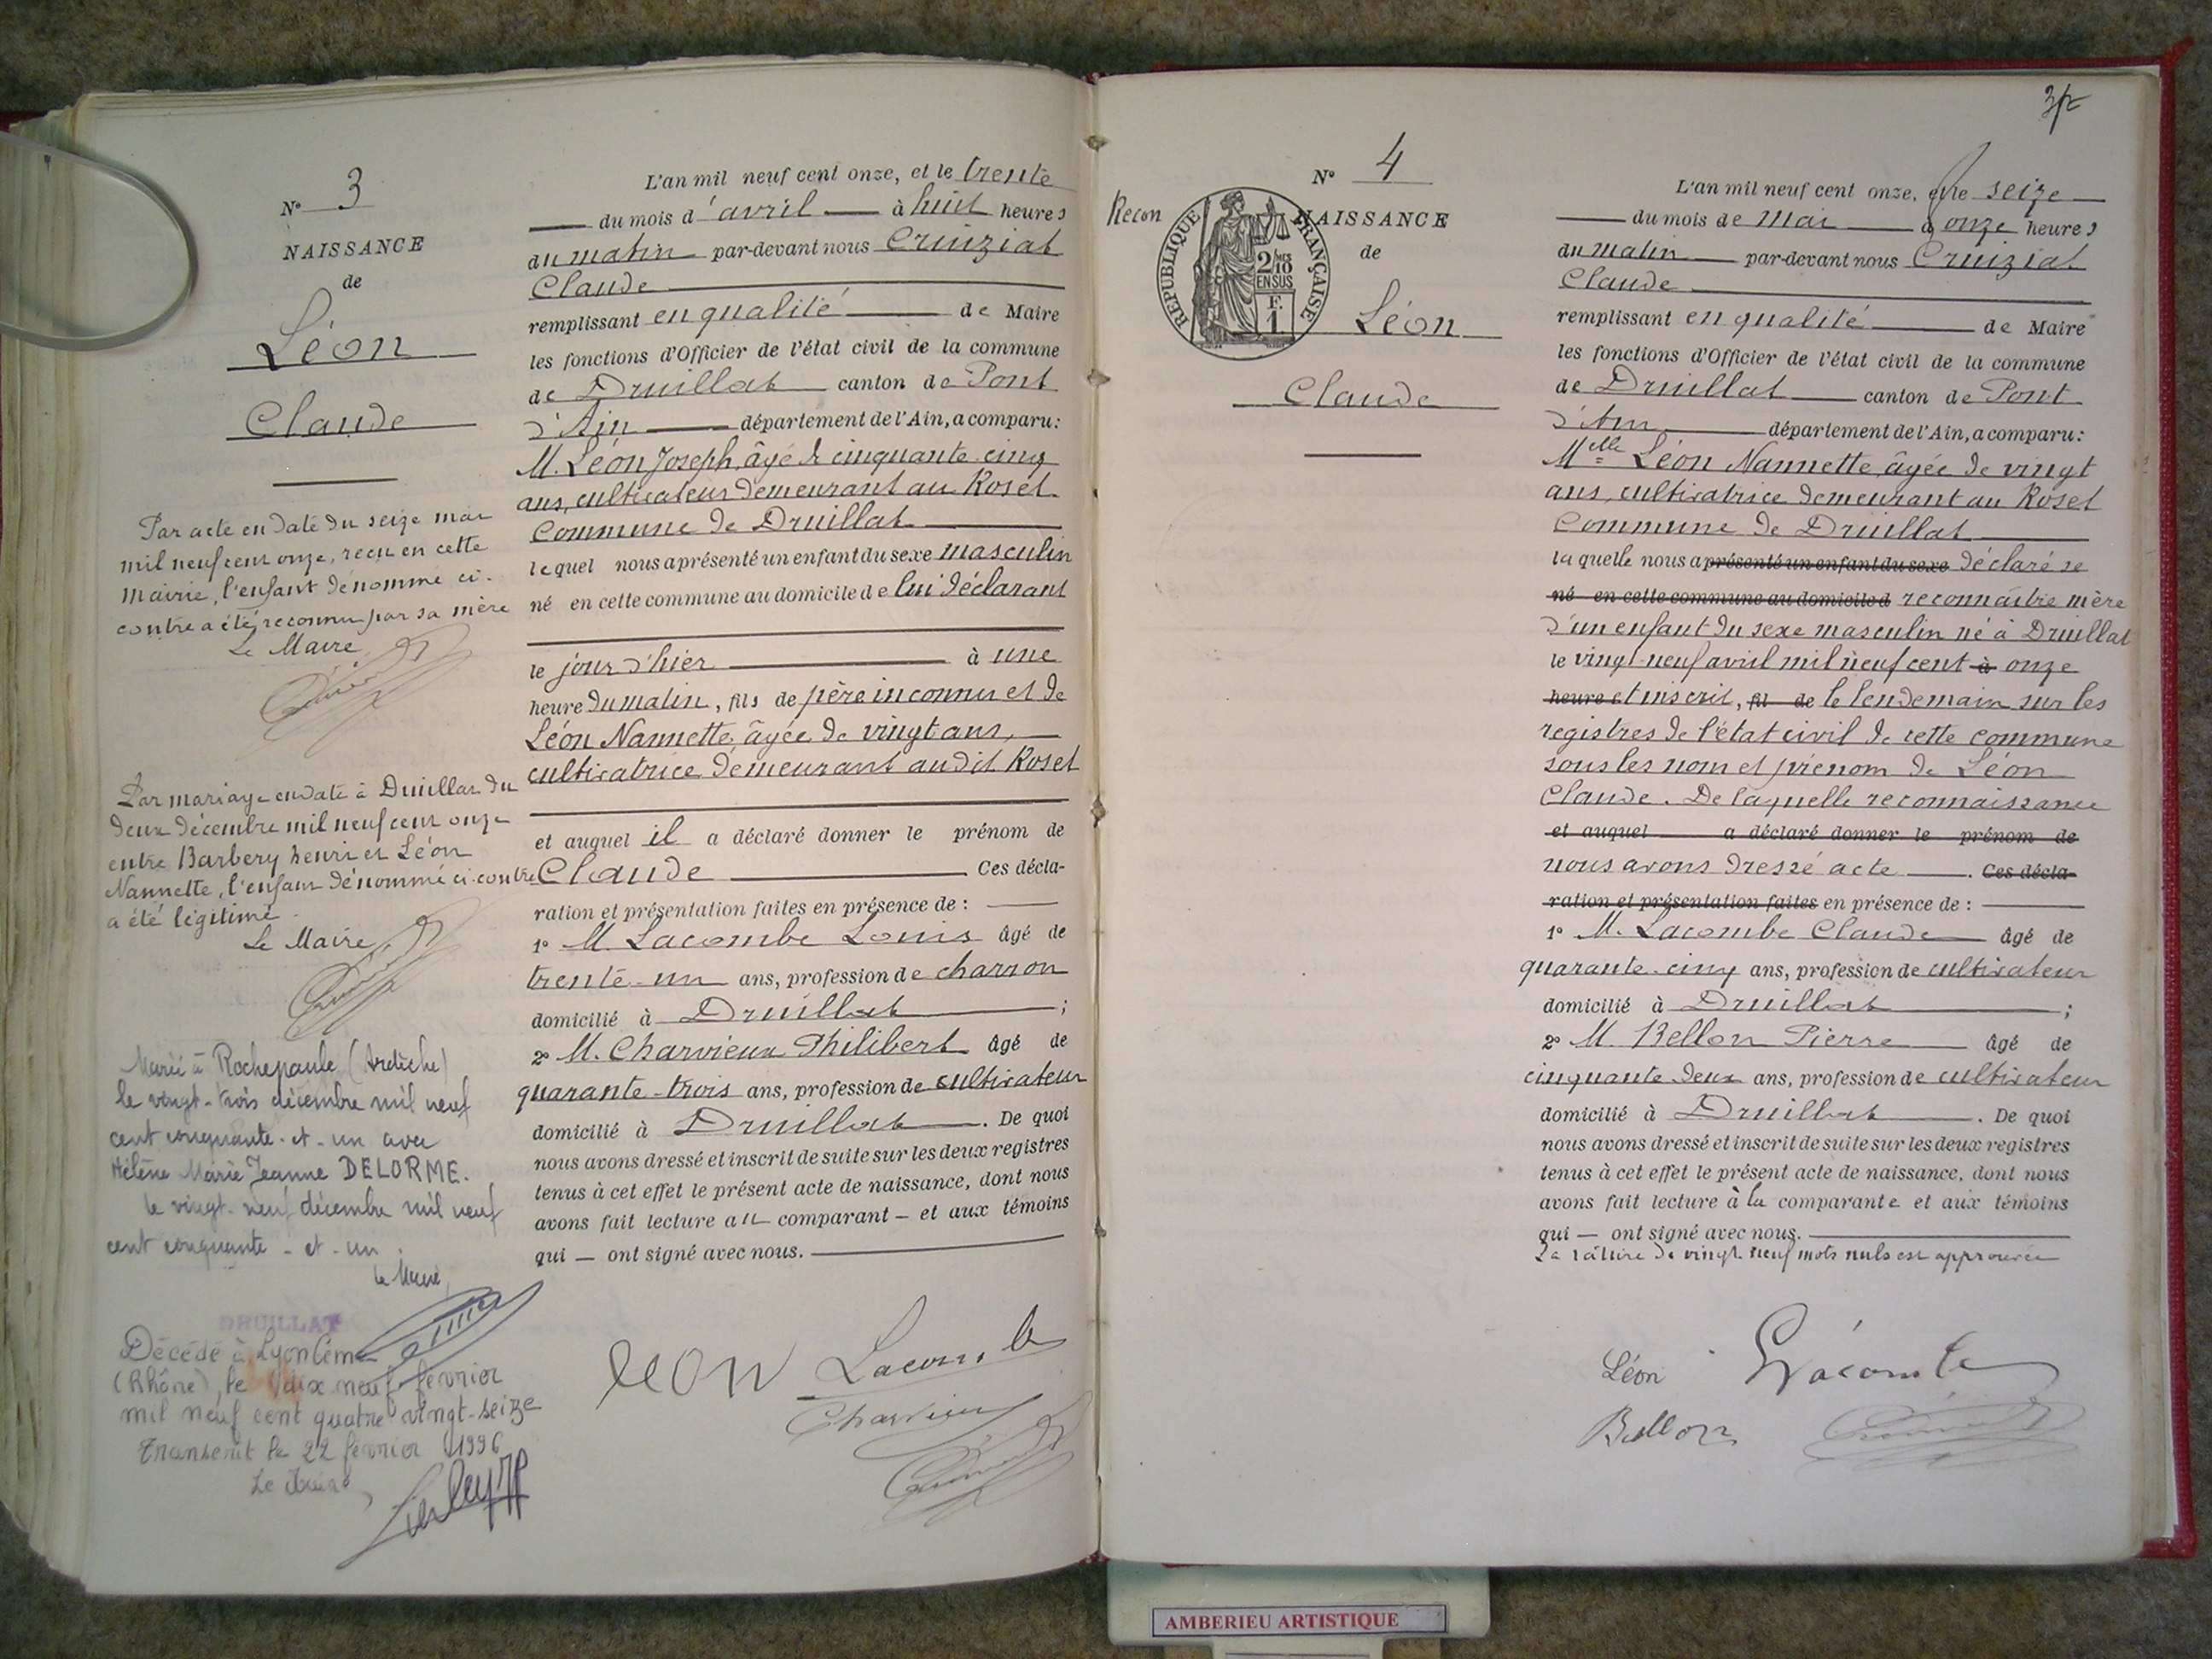 N° 3
NAISSANCE
de
Léon
Claude
Par acte en date du seize mai
mil neuf cent onze, recu en cette
Mairie, l'enfant dénommé ci-
contre a été reconnu par sa mère
Le Maire
Par mariage en date à Druillat du
deux décembre mil neuf cent onze
entre Barbery henri et Léon
Nannette, l'enfant dénommé ci-contre
a été légitimé.
Le Maire,
Marié à Rochepaule (Ardèche)
le vingt-trois décembre mil neuf
cent cinquante-et-un avec
Hélène Marie Jeanne DELORME.
le vingt-neuf décembre mil neuf
cent cinquante-et-un.
Le Maire,
DRUILLAT
Décédé à Lyon
(Rhône), le dix neuf février
mil neuf cent quatre vingt-seize
Transcrit le 22 février 1996
Le Maire,
L'an mil neuf cent onze, et le trente
du mois d'avril à huit heures
du matin par-devant nous Cruiziat
Claude
remplissant en qualité de Maire
les fonctions d'Officier de l'état civil de la commune
de Druillat canton de Pont
d'Ain département de l'Ain, a comparu:
M. Léon Joseph, âgé de cinquante-cinq
ans, cultivateur demeurant au Roset
Commune de Druillat
lequel nous a présenté un enfant du sexe masculin
né en cette commune au domicile de lui déclarant
le jour d'hier à une
heure du matin, fils de père inconnu et de
Léon Nannette, âgée de vingt ans,
cultivatrice demeurant au dit Roset
et auquel il a déclaré donner le prénom de
Claude Ces décla-
ration et présentation faites en présence de :
1° M. Lacombe Louis âgé de
trente-un ans, profession de charron
domicilié à Druillat ;
2° M. Charvieux Philibert âgé de
quarante-trois ans, profession de cultivateur
domicilié à Druillat. De quoi
nous avons dressé et inscrit de suite sur les deux registres
tenus à cet effet le présent acte de naissance, dont nous
avons fait lecture au comparant — et aux témoins
qui — ont signé avec nous.
leon Lacombe
Charvieux
N° 4
Recon NAISSANCE
de
RÉPUBLIQUE FRANÇAISE
2/10
EN SUS
F.
1
Léon
Claude
L'an mil neuf cent onze, et le seize
du mois de mai à onze heures
du matin par-devant nous Cruiziat
Claude
remplissant en qualité de Maire
les fonctions d'Officier de l'état civil de la commune
de Druillat canton de Pont
d'Ain département de l'Ain, a comparu:
Melle Léon Nannette, âgée de vingt
ans, cultivatrice demeurant au Roset
Commune de Druillat
laquelle nous a présenté un enfant du sexe déclaré se
né en cette commune au domicile d reconnaître mère
d'un enfant du sexe masculin né à Druillat
le vingt-neuf avril mil neuf cent à onze
heure et inscrit, fil de le lendemain sur les
registres de l'état civil de cette commune
sous les nom et prénom de Léon
Claude. De laquelle reconnaissance
et auquel a déclaré donner le prénom de
nous avons dressé acte. Ces décla-
ration et présentation faites en présence de :
1° M. Lacombe Claude âgé de
quarante-cinq ans, profession de cultivateur
domicilié à Druillat ;
2° M. Bellon Pierre âgé de
cinquante deux ans, profession de cultivateur
domicilié à Druillat. De quoi
nous avons dressé et inscrit de suite sur les deux registres
tenus à cet effet le présent acte de naissance, dont nous
avons fait lecture à la comparante et aux témoins
qui — ont signé avec nous.
La rature de vingt neuf mots nuls est approuvée
Léon Lacombe
Bellon
AMBERIEU ARTISTIQUE